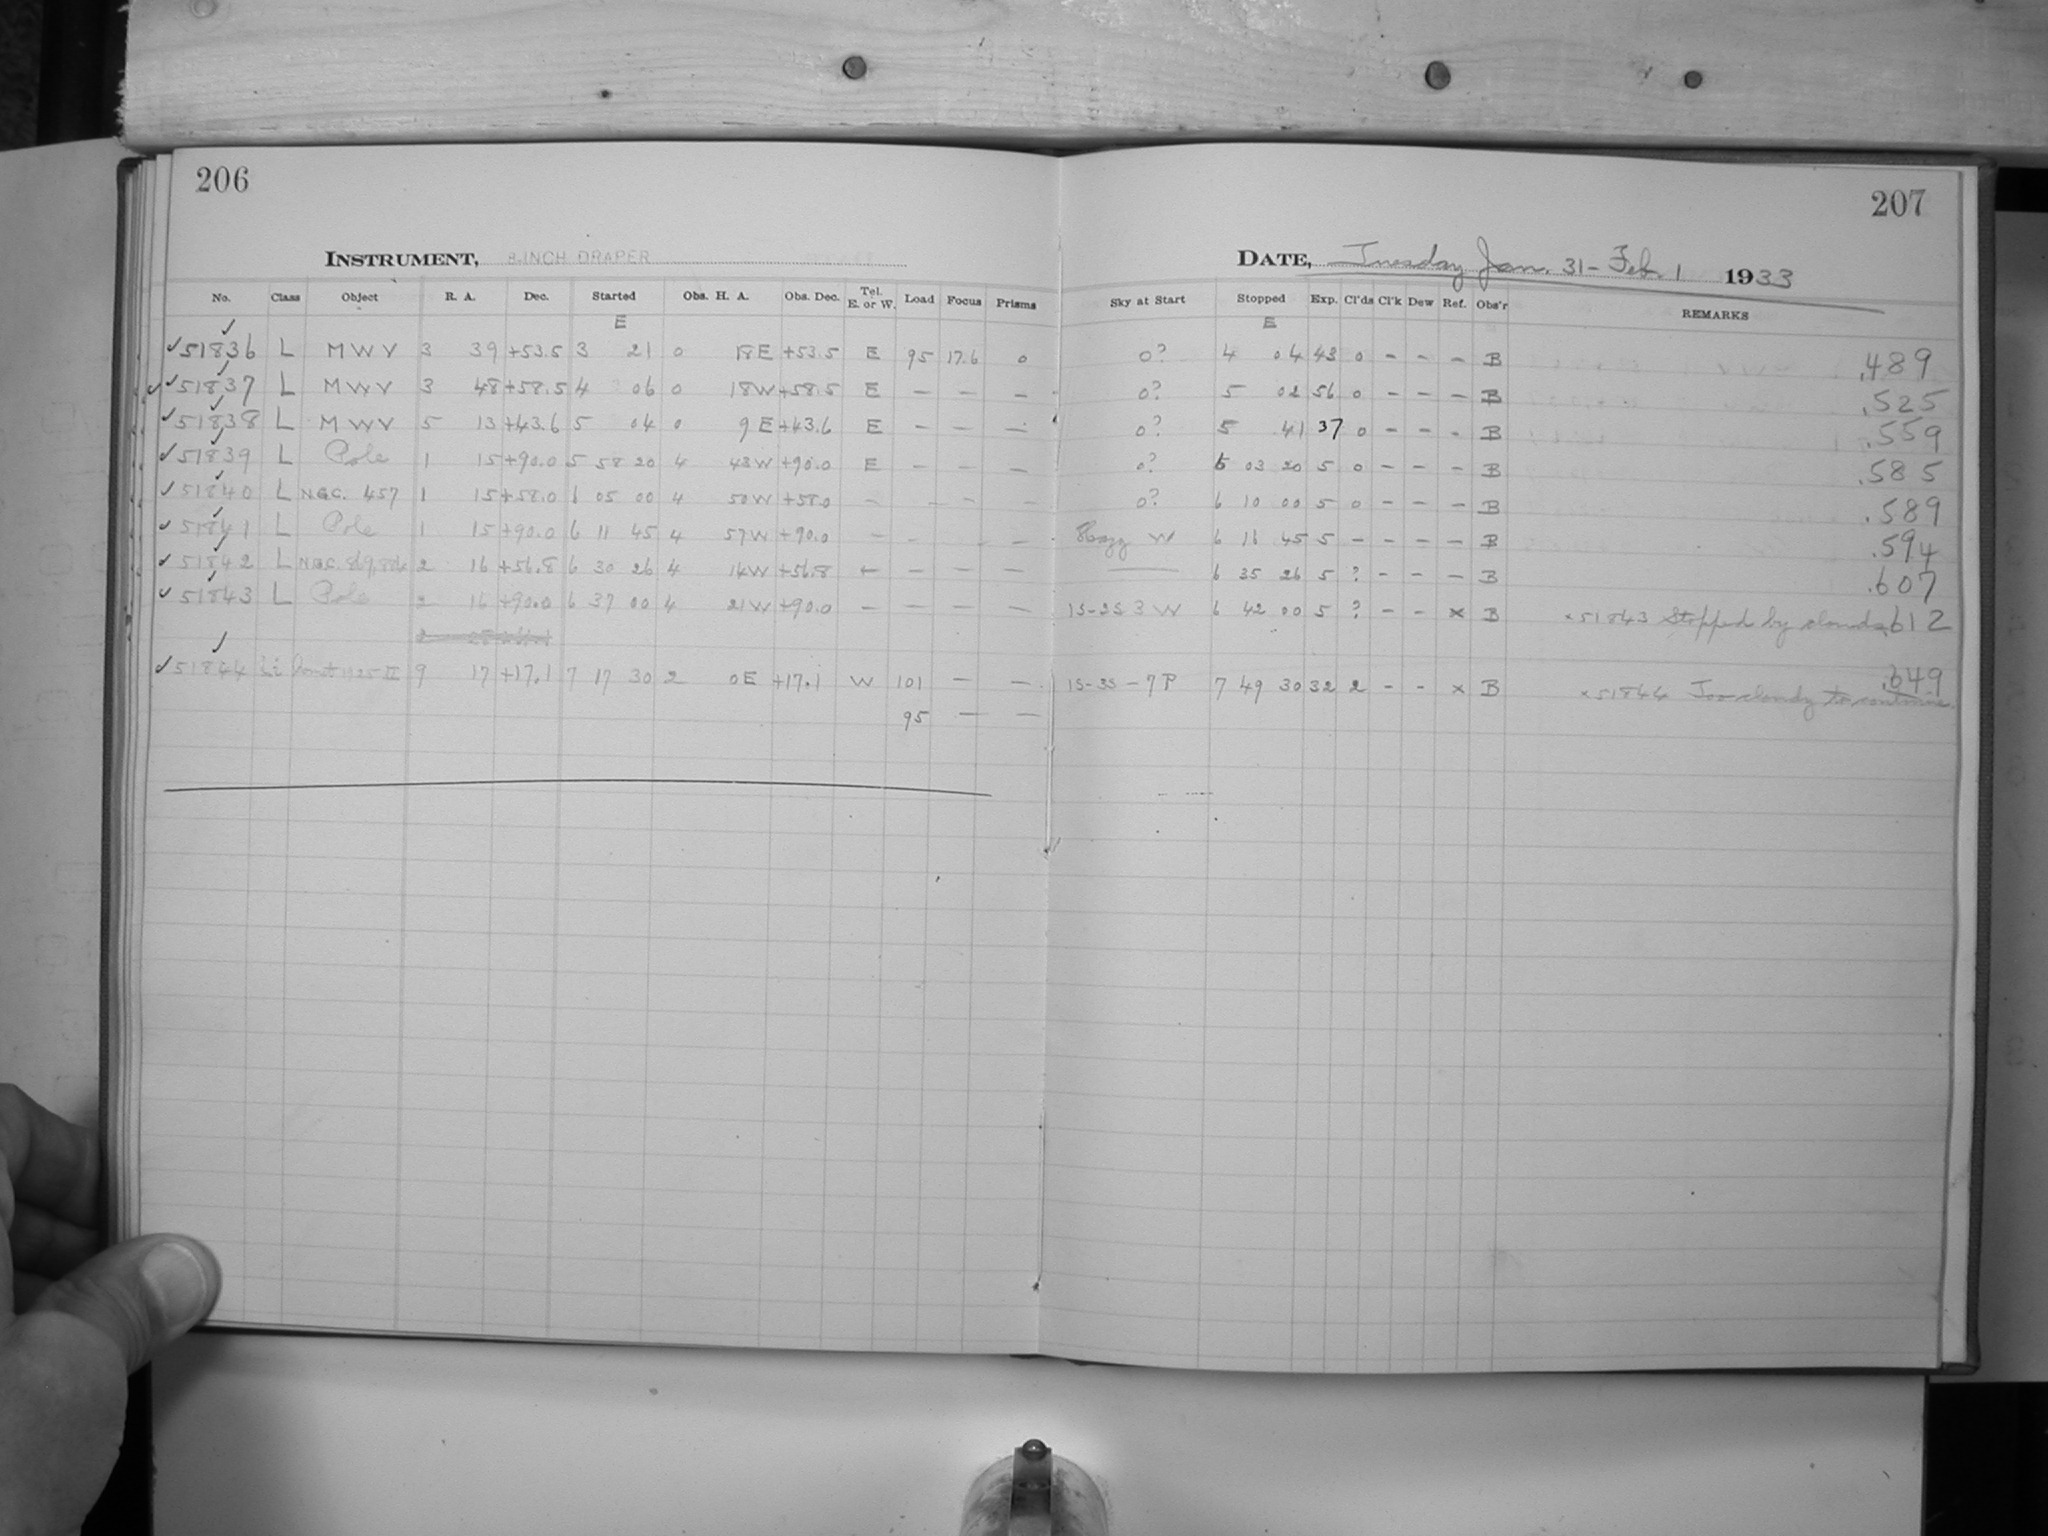 206
INSTRUMENT, 8-INCH DRAPER
No. Class Object R. A. Dec. Started Obs. H. A. Obs. Dec. Tel. E. or W. Load Focus Prisms
E
✓51836 L MWV 3 39 +53.5 3 21 0 18E +53.5 E 95 17.6 0
✓51837 L MWV 3 48 +58.5 4 06 0 18W +58.5 E — — —
✓51838 L MWV 5 13 +43.6 5 04 0 9E +43.6 E — — —
✓51839 L Pole 1 15 +90.0 5 58 20 4 43W +90.0 E — — —
✓51840 L N.G.C. 457 1 15 +58.0 6 05 00 4 50W +58.0 — — — —
✓51841 L Pole 1 15 +90.0 6 11 45 4 57W +90.0 — — — —
✓51842 L N.G.C. 869,884 2 16 +56.8 6 30 26 4 14W +56.8 — — — —
✓51843 L Pole 2 16 +90.0 6 37 00 4 21W +90.0 — — — —
✓51844 Li 1925 II 9 17 +17.1 7 17 30 2 0E +17.1 W 101 — —
95 — —
207
DATE, Tuesday Jan. 31 - Feb. 1 1933
Sky at Start Stopped Exp. Cl'ds Cl'k Dew Ref. Obs'r REMARKS
E
0? 4 04 43 0 - - - B .489
0? 5 02 56 0 - - - B .525
0? 5 41 37 0 - - - B .559
0? 6 03 20 5 0 - - - B .585
0? 6 10 00 5 0 - - - B .589
Hazy W 6 16 45 5 - - - - B .594
— 6 35 26 5 ? - - - B .607
1S-2S 3 W 6 42 00 5 ? - - x B x51843 Stopped by clouds .612
1S-3S - 7 P 7 49 30 32 2 - - x B x51844 Too cloudy to continue. .649